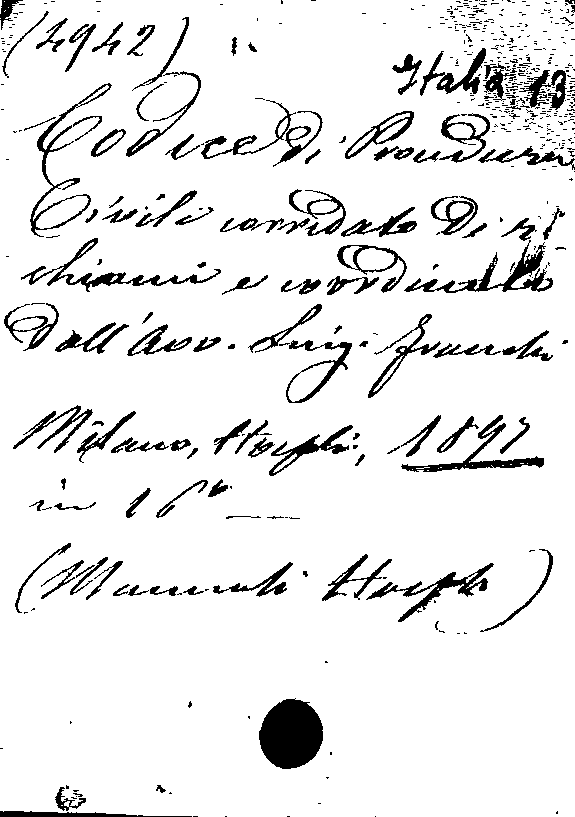 (4942)
Italia 13
Codice di Procedura
Civile corredato di ri
chiami e coordinato
dall'Avv. Luigi Franchi
Milano, Hoepli, 1897
in 16º
(Manuali Hoepli)